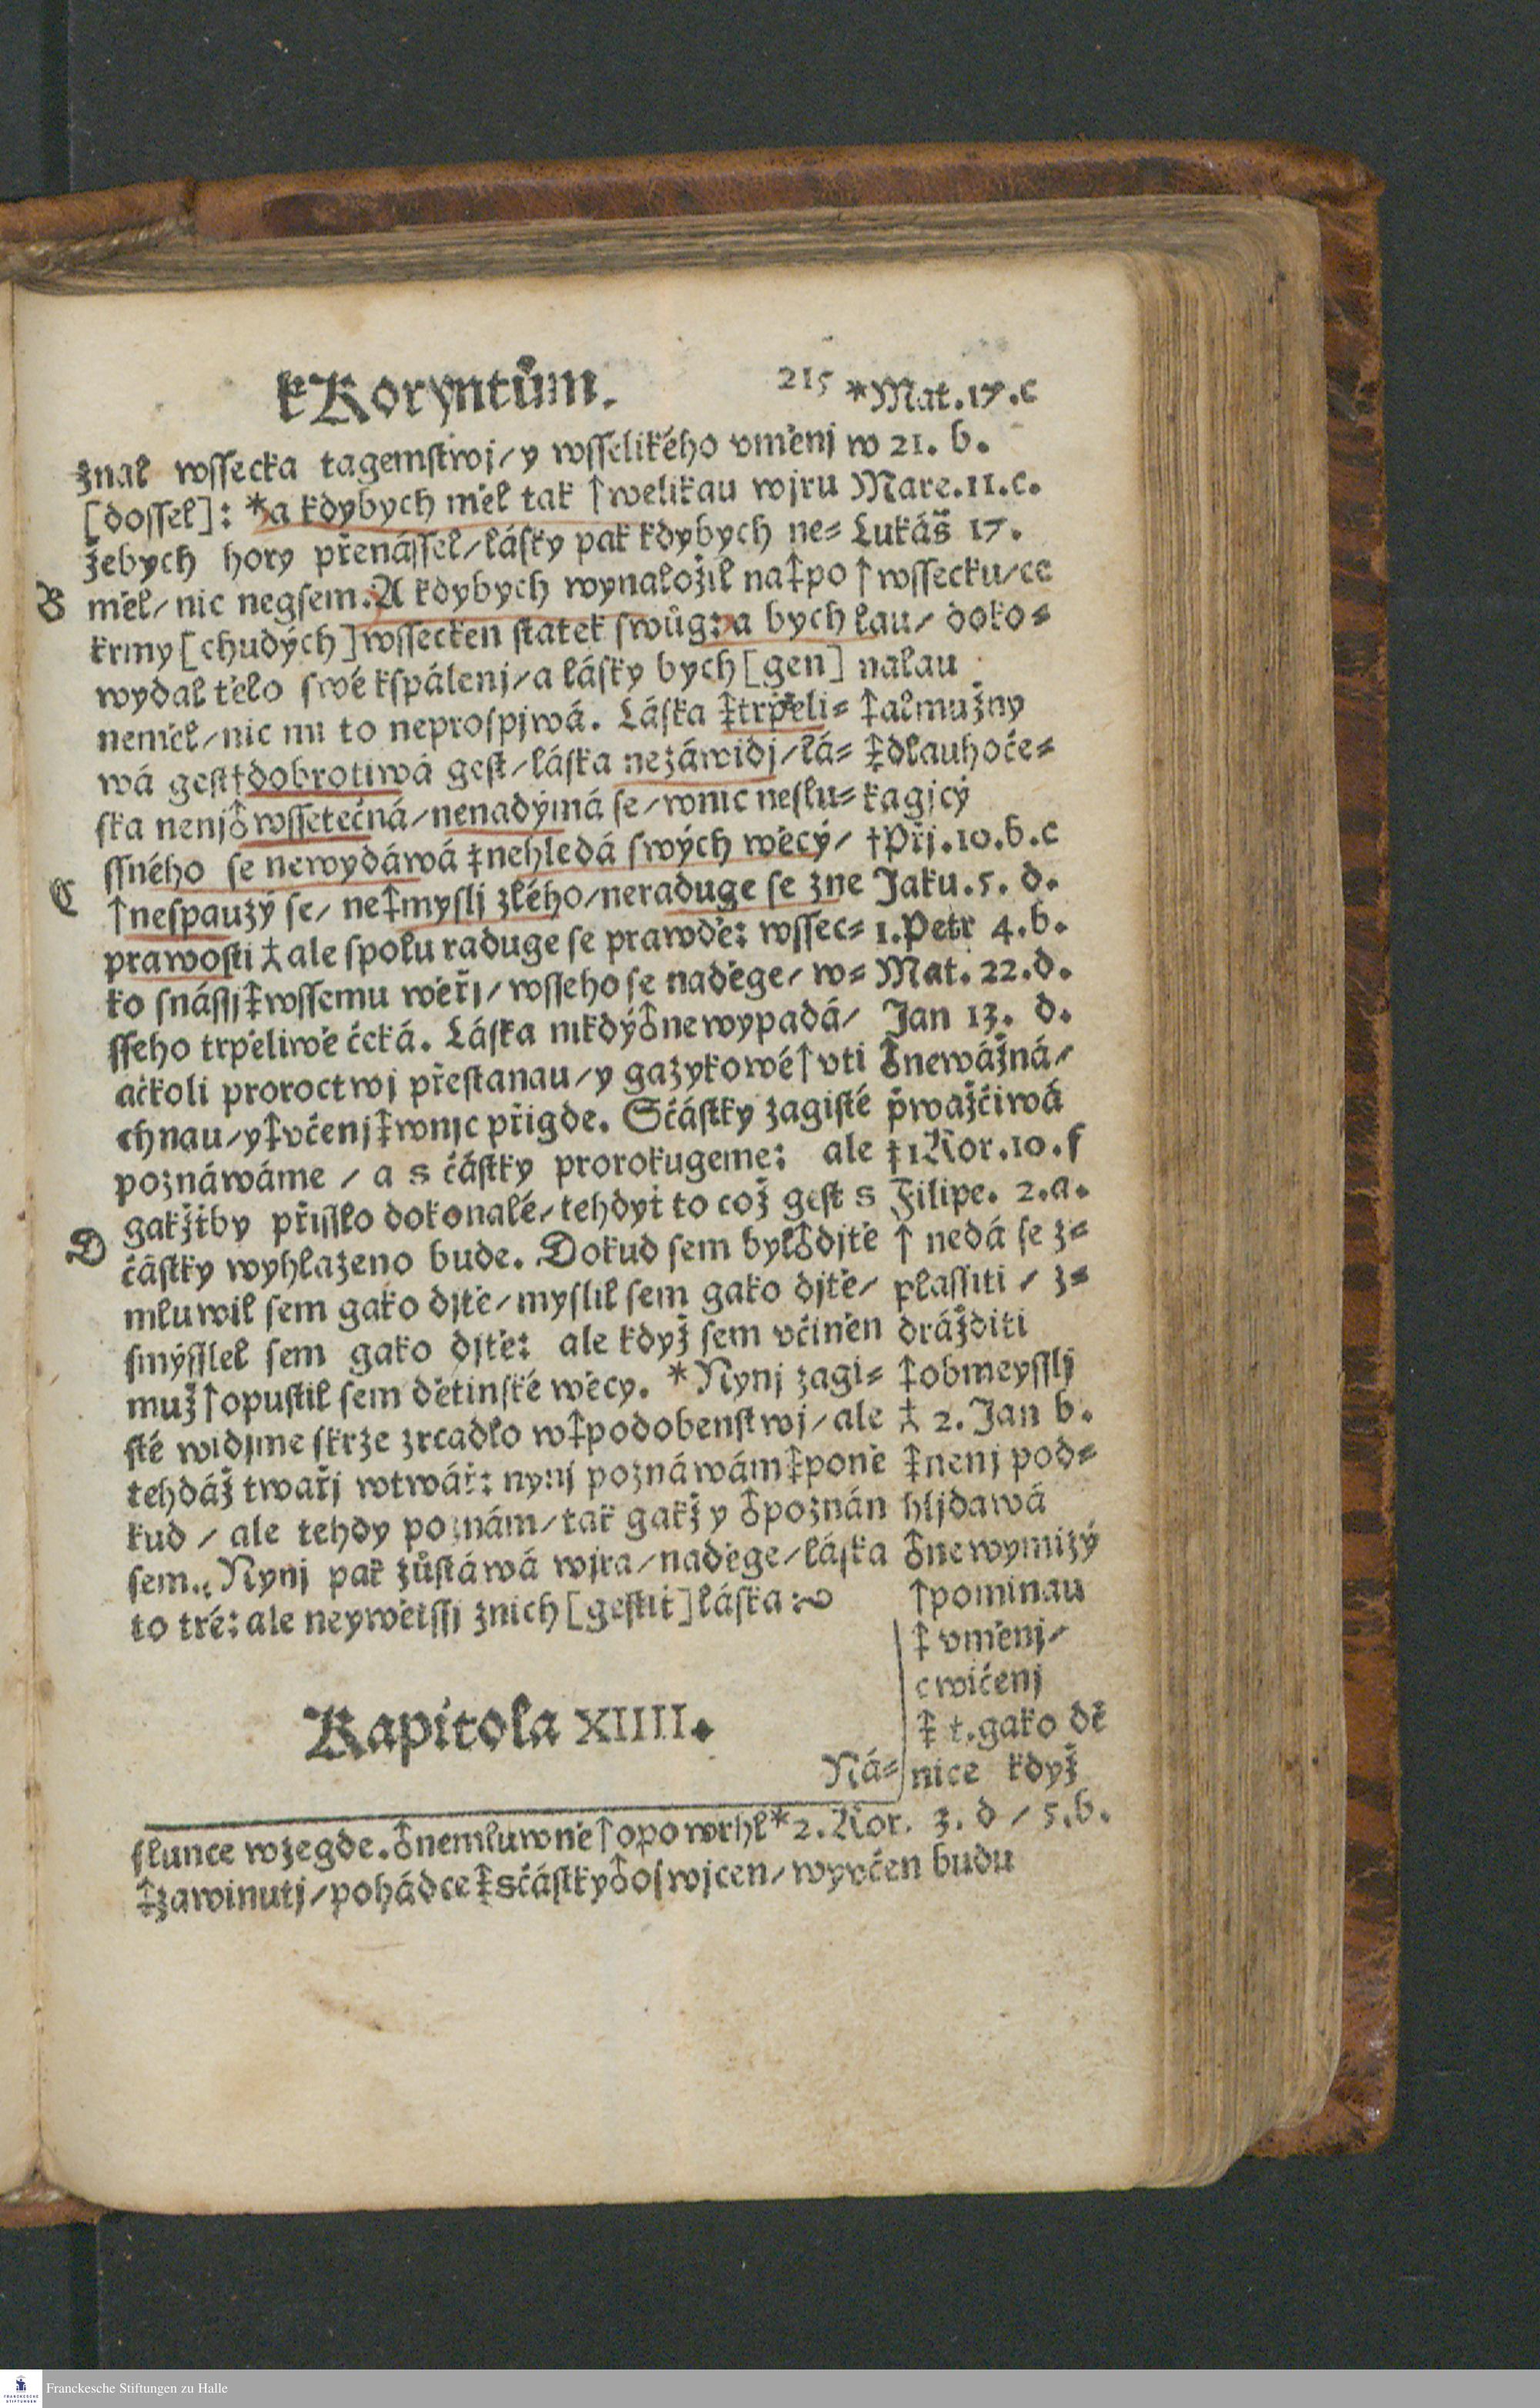 kKoryntům.
215
znal wssecka tagemstwj/ y wsselikého vměnj
[dossel]: *a kdybych měl tak ↑welikau wjru
žebych hory přenássel/ lásky pak kdybych ne=
B
měl/ nic negsem. A kdybych wynaložil na‡po
krmy [chudých] wssecken statek swůg: a bych
wydal tělo swé kspálenj/ a lásky bych [gen]
neměl/ nic mi to neprospjwá. Láska ‡trpěli=
wá gest †dobrotiwá gest/ láska nezáwidj/ lá=
ska nenj♁wssetečná/ nenadýmá se/ wnic neslu=
ssného se newydáwá ‡nehledá swých wěcý/
C
↑nespauzý se/ ne‡myslj zlého/ neraduge se zne
prawosti ⁑ale spolu raduge se prawdě: wssec=
ko snássj‡wssemu wěřj/ wsseho se naděge/ w=
sseho trpěliwě čcká. Láska nikdý♁newypadá/
ačkoli proroctwj přestanau/ y gazykowé↑vti
chnau/ y‡včenj‡wnjc přigde. Sčástky zagisté
poznáwáme / a s částky prorokugeme: ale
gakžťby přisslo dokonalé/ tehdyť to což gest s
D
částky wyhlazeno bude. Dokud sem byl♁djtě
mluwil sem gako djtě/ myslil sem gako djtě/
smýsslel sem gako djtě: ale když sem včiněn
muž↑opustil sem dětinské wěcy. *Nynj zagi=
sté widjme skrze zrcadlo w‡podobenstwj/ ale
tehdáž twařj wtwář: nynj poznáwám‡poně
kud / ale tehdy poznám/ tak gakž y ♁poznán
sem. Nynj pak zůstáwá wjra/ naděge/ láska
to tré: ale neywětssj znich [gestiť] láska:
Kapitola XIIII.
Ná=
*Mat.17.c
w 21. b.
Marc.11.c.
Lukáš 17.
↑wssecku/ ce
lau/ doko=
nalau
‡almužny
‡dlauhoče=
kagjcý
†Přj.10.b.c
Jaku.5. d.
1.Petr 4.b.
Mat. 22.d.
Jan 13. d.
♁newážná/
wažčiwá
‡1Kor.10.f
Filipe. 2.a.
↑ nedá se z=
plassiti / z=
drážditi
‡obmeysslj
⁑ 2. Jan b.
‡nenj pod=
hljdawá
♁newymizý
↑pominau
‡ vměnj/
cwičenj
‡ t.gako dě
nice když
slunce wzegde.♁nemluwně↑opowrhl*2.Kor. 3. d / 5.b.
‡zawinutj/ pohádce‡sčástky♁oswjcen/ wyvčen budu
Franckesche Stiftungen zu Halle
FRANCKESCHE
STIFTUNGEN